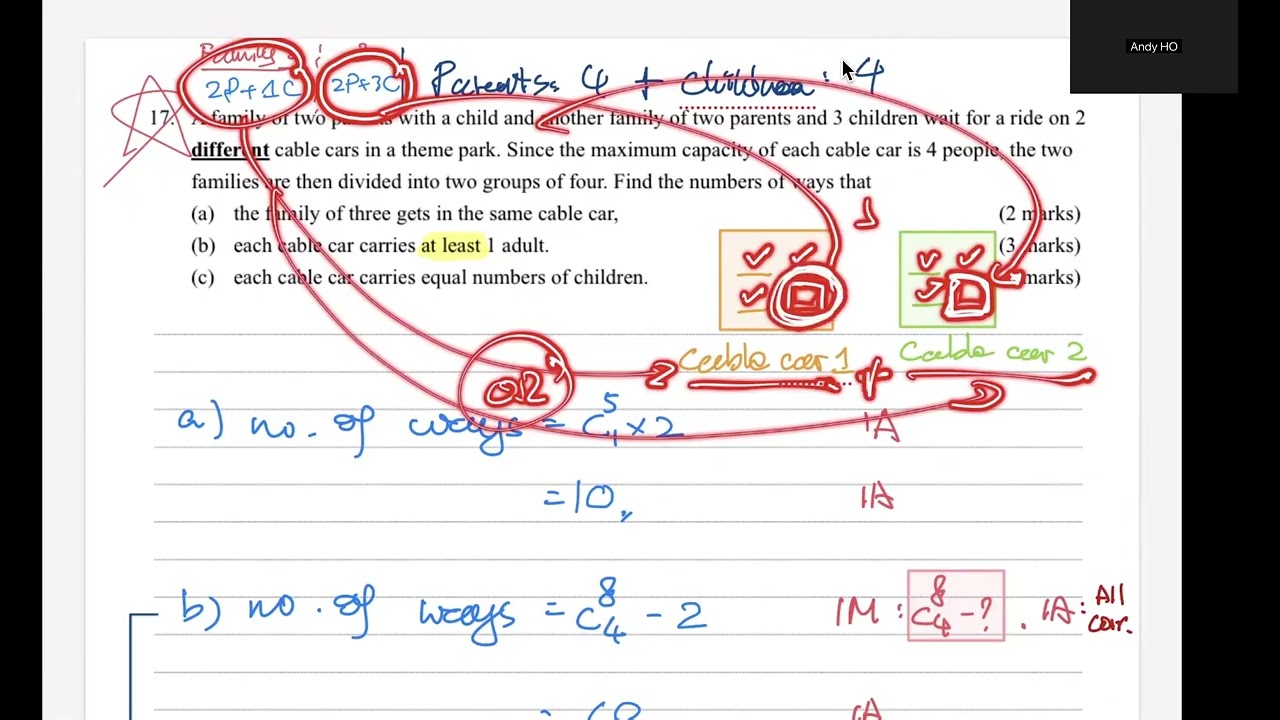 Andy HO
Families
2P+1C 2P+3C Parents: 4 + children: 4
17. A family of two parents with a child and another family of two parents and 3 children wait for a ride on 2
different cable cars in a theme park. Since the maximum capacity of each cable car is 4 people, the two
families are then divided into two groups of four. Find the numbers of ways that
(a) the family of three gets in the same cable car, (2 marks)
(b) each cable car carries at least 1 adult. (3 marks)
(c) each cable car carries equal numbers of children. marks)
Cable car 1 Cable car 2
OR
a) no. of ways = C⁵₁ × 2 1A
= 10, 1A
b) no. of ways = C⁸₄ - 2 1M : C⁸₄ - ? . 1A : All
corr.
= 68 1A